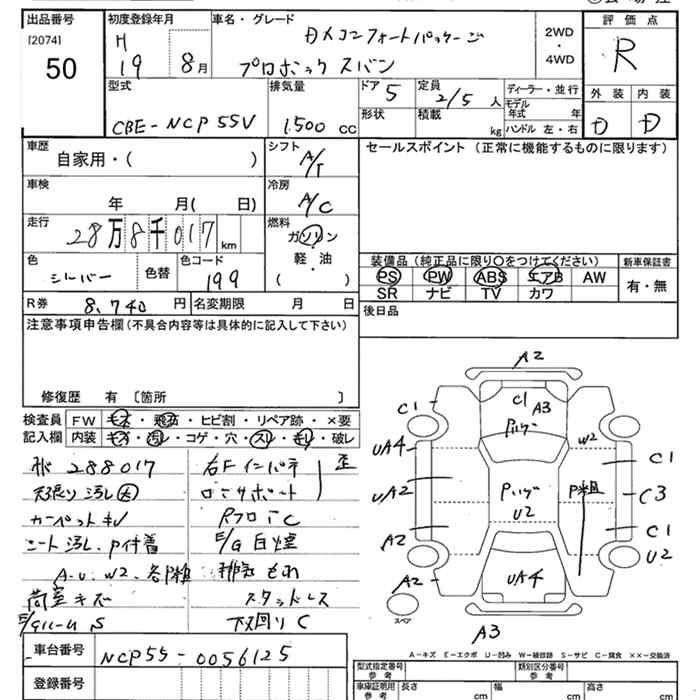 出品番号
[2074]
50
初度登録年月
H
19 8月
車名・グレード
DXコンフォートパッケージ
プロボックスバン
2WD
・
4WD
評価点
R
外装 内装
D D
型式
CBE-NCP55V
排気量
1,500 cc
ドア 5
定員
2/5 人
形状
積載
kg
ディーラー・並行
モデル年式 年
ハンドル 左・右
車歴
自家用・( )
シフト
A/T
セールスポイント (正常に機能するものに限ります)
車検
年 月( 日)
冷房
A/C
走行
28万8千017 km
燃料
ガソリン
軽・油
( )
色
シルバー
色替
色コード
199
装備品 (純正品に限り○をつけてください)
PS PW ABS エアB AW
SR ナビ TV カワ
新車保証書
有・無
R券 8,740 円
名変期限 月 日
後日品
注意事項申告欄 (不具合内容等は具体的に記入して下さい)
修復歴 有 〔箇所 〕
検査員
記入欄
FW キズ・飛石・ヒビ割・リペア跡・×要
内装 キズ・汚レ・コゲ・穴・スレ・キレ・破レ
288017
右Fインパネ
歪
天張り汚レ大
ロアサポート
カーペットキレ
RフロアC
シート汚レ、P付着
E/G白煙
A・U・W2、各P粗
排気もれ
荷室キズ
スタッドレス
E/Gルーム S
下廻りC
A2
C1
C1
A3
Pハゲ
UA4
W2
C1
UA2
Pハゲ
U2
P粗
C3
A2
C1
U2
A2
UA4
スペア
A3
A-キズ E-エクボ U-凹み W-補修跡 S-サビ C-腐食 ××-交換済
車台番号
NCP55-0056125
登録番号
型式指定番号
参考
類別区分番号
参考
車庫証明用
参考
長さ cm
幅 cm
高さ cm